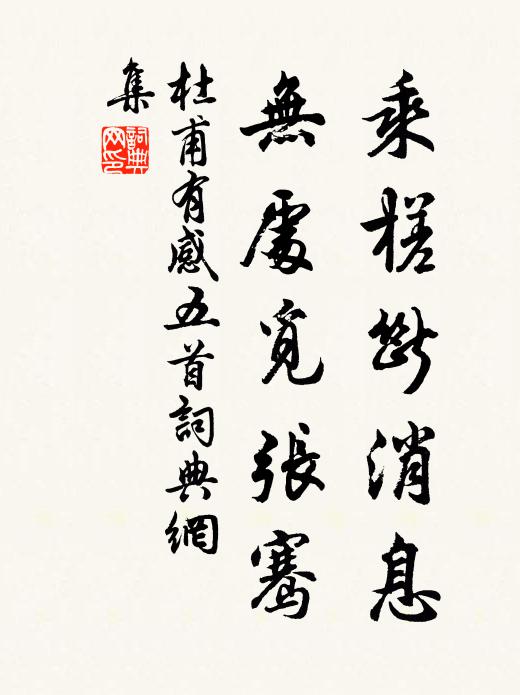 乘槎斷消息
無處覓張騫
杜甫有感五首詞典網
集
詞典
网印